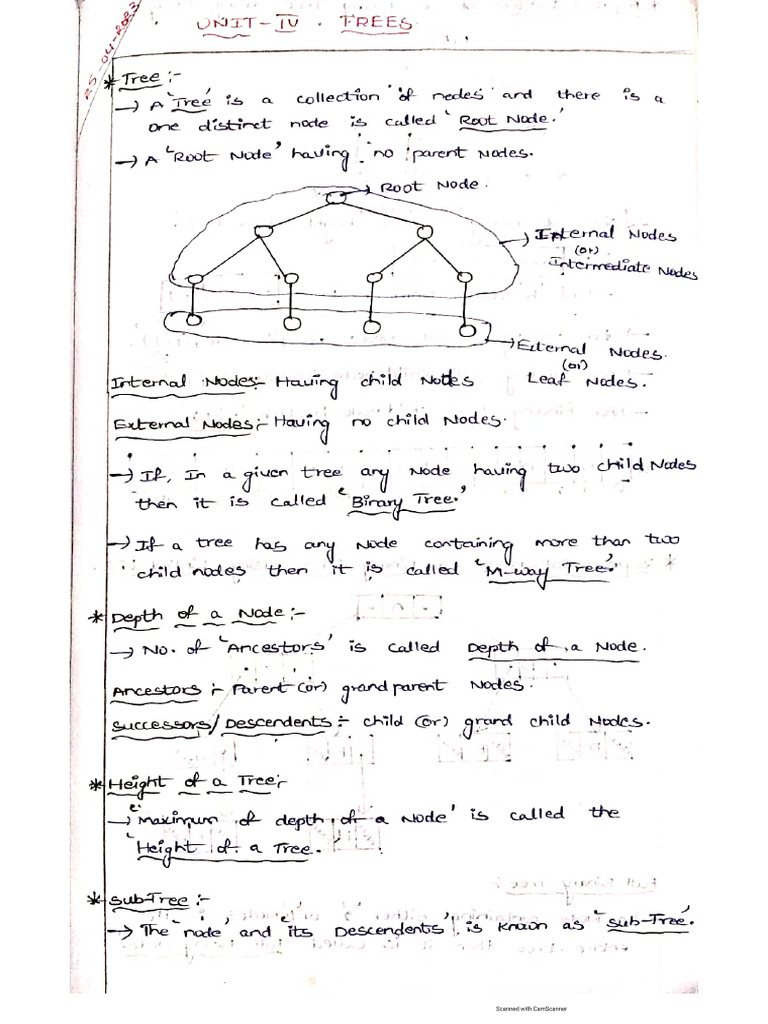 25-04-2023
UNIT-IV. TREES
* Tree :-
→ A 'Tree' is a collection of nodes and there is a
one distinct node is called 'Root Node.'
→ A 'Root Node' having no parent Nodes.
→ Root Node.
→ Internal Nodes
(or)
Intermediate Nodes
→ External Nodes.
(or)
Leaf Nodes.
Internal Nodes:- Having child Nodes
External Nodes:- Having no child Nodes.
→ If, In a given tree any Node having two child Nodes
then it is called 'Binary Tree.'
→ If a tree has any Node containing more than two
child nodes then it is called 'M-way Tree.'
* Depth of a Node:-
→ No. of 'Ancestors' is called Depth of a Node.
Ancestors :- Parent (or) grand parent Nodes.
Successors/Descendents :- child (or) grand child Nodes.
* Height of a Tree:-
→ 'Maximum of depth of a Node' is called the
'Height of a Tree.'
* Sub-Tree :-
→ The 'node' and its Descendents', is known as 'sub-Tree'.
Scanned with CamScanner